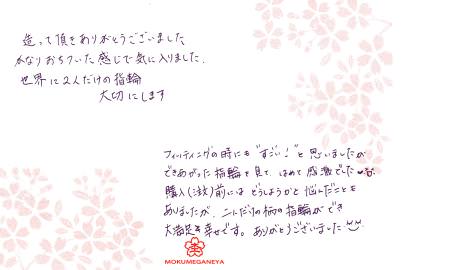 造って頂きありがとうございました
かなりおちついた感じで気に入りました。
世界に2人だけの指輪
大切にします
フィッティングの時にも"すごい!"と思いましたが
できあがった指輪を見て、改めて感激でした
購入(注文)前にはどうしようかと悩んだことも
ありましたが、二人だけの柄の指輪ができ
大満足で幸せです。ありがとうございました
MOKUMEGANEYA